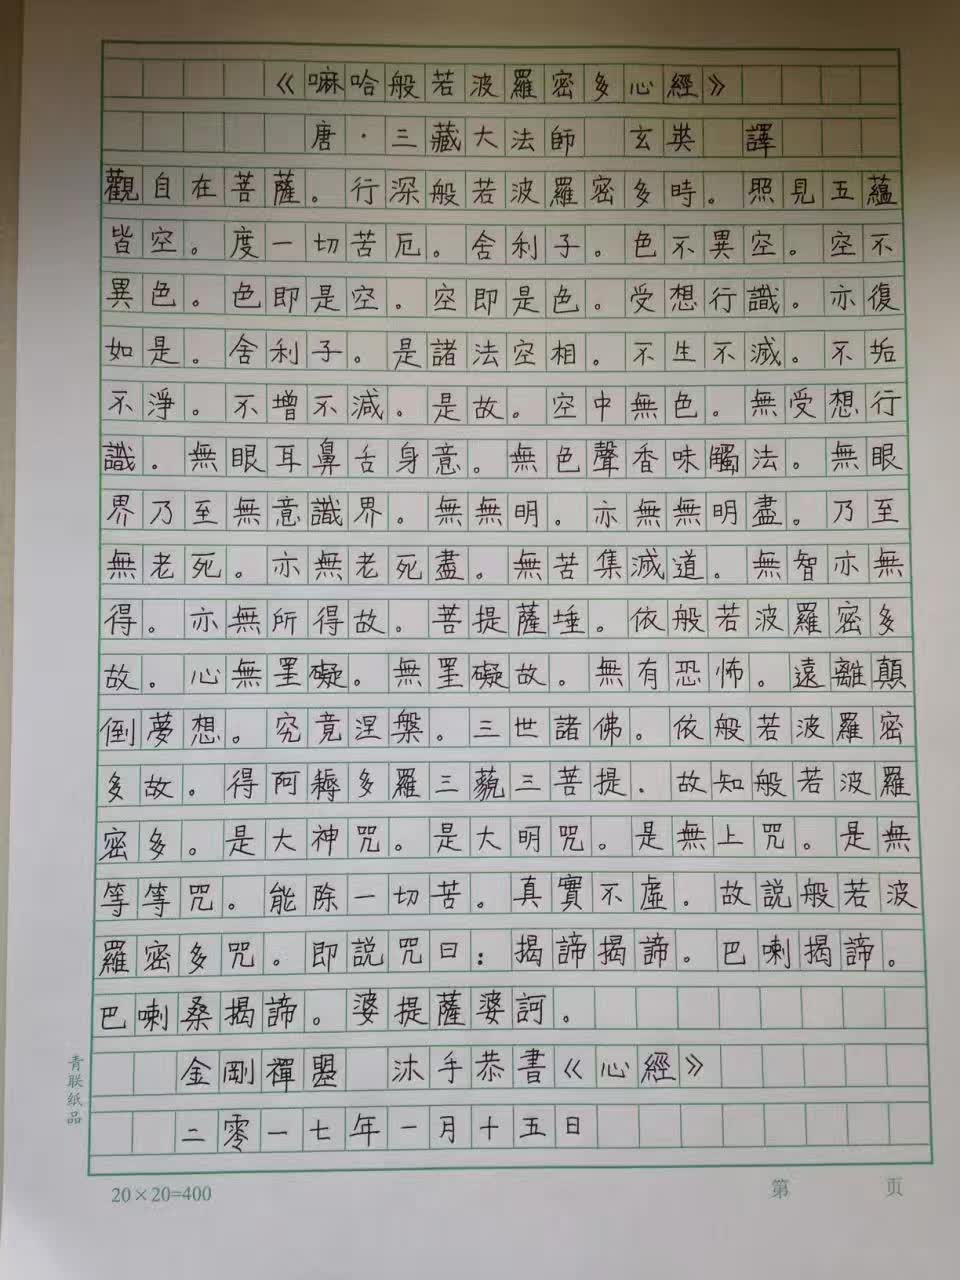 《嘛哈般若波羅密多心經》
唐·三藏大法師 玄英 譯
觀自在菩薩。行深般若波羅密多時。照見五蘊
皆空。度一切苦厄。舍利子。色不異空。空不
異色。色即是空。空即是色。受想行識。亦復
如是。舍利子。是諸法空相。不生不滅。不垢
不淨。不增不減。是故。空中無色。無受想行
識。無眼耳鼻舌身意。無色聲香味觸法。無眼
界乃至無意識界。無無明。亦無無明盡。乃至
無老死。亦無老死盡。無苦集滅道。無智亦無
得。亦無所得故。菩提薩埵。依般若波羅密多
故。心無罣礙。無罣礙故。無有恐怖。遠離顛
倒夢想。究竟涅槃。三世諸佛。依般若波羅密
多故。得阿耨多羅三藐三菩提.故知般若波羅
密多。是大神咒。是大明咒。是無上咒。是無
等等咒。能除一切苦。真實不虛。故説般若波
羅密多咒。即説咒曰：揭諦揭諦。巴喇揭諦。
巴喇桑揭諦。婆提薩婆訶。
金剛禪 沐手恭書《心經》
二零一七年一月十五日
青联纸品
20×20=400 第 页